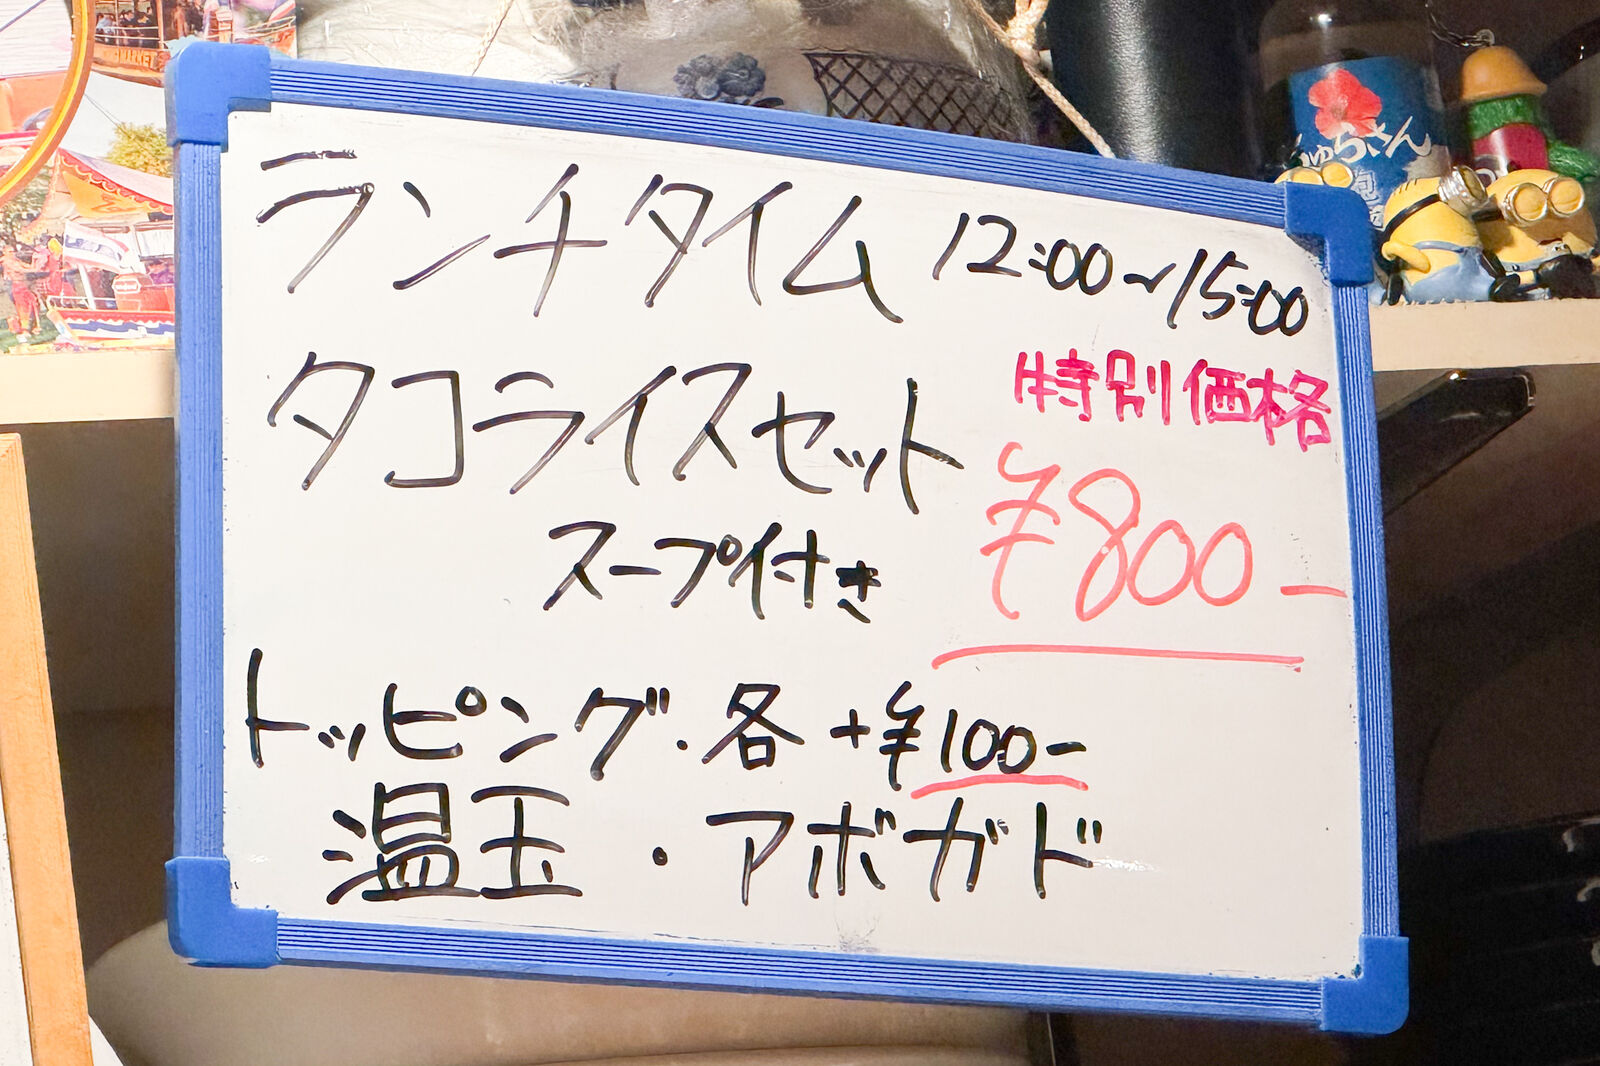 MARKET
ランチタイム 12:00~15:00
タコライスセット
特別価格
¥800-
スープ付き
トッピング・各 +¥100-
温玉・アボガド
ちゅらさん